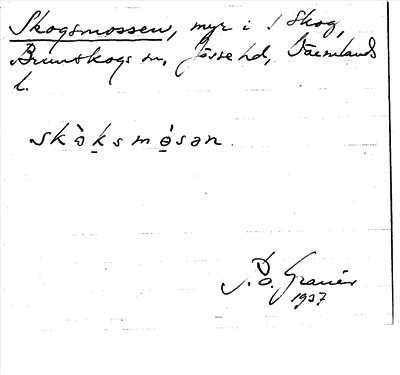 Skogsmossen, myr i Skog,
Brunskogs sn, Jösse hd, Värmlands
l.
skò̱ksmö̱̀sən.
P. O. Granér
1937